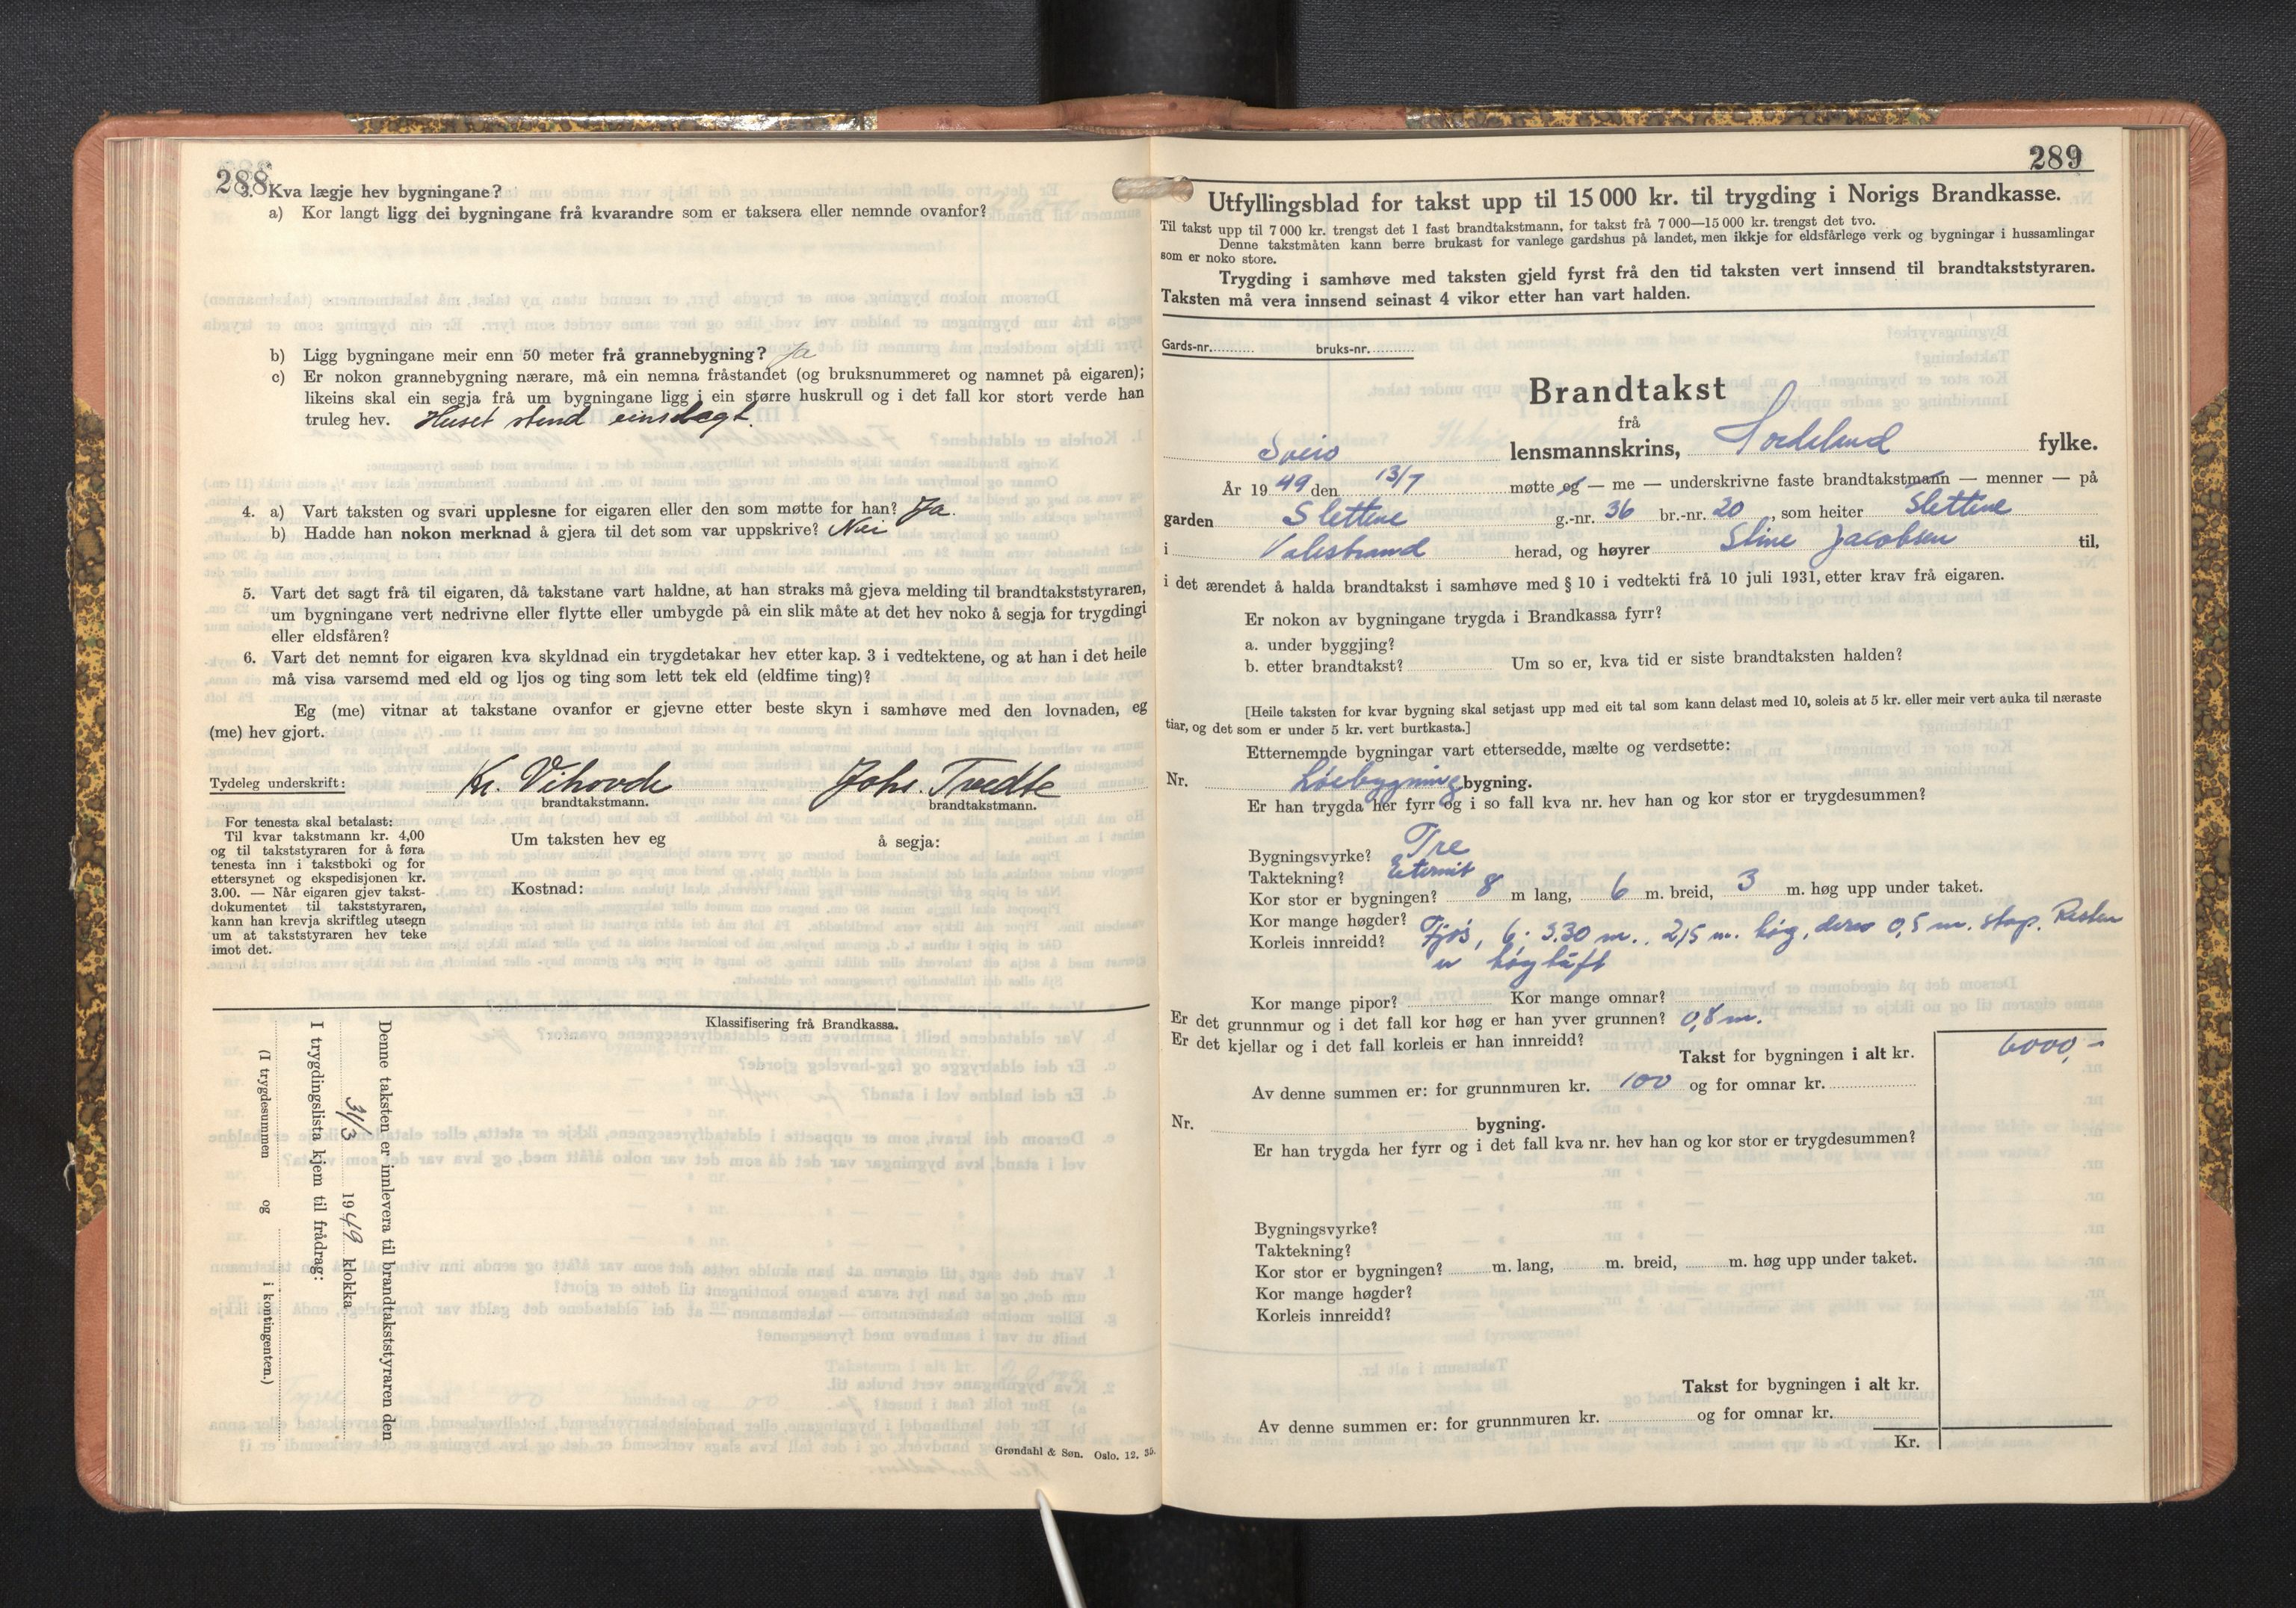 288
3. Kva lægje hev bygningane?
a) Kor langt ligg dei bygningane frå kvarandre som er taksera eller nemnde ovanfor?
b) Ligg bygningane meir enn 50 meter frå grannebygning? Ja
c) Er nokon grannebygning nærare, må ein nemna fråstandet (og bruksnummeret og namnet på eigaren);
likeins skal ein segja frå um bygningane ligg i ein større huskrull og i det fall kor stort verde han
truleg hev. Huset stend einslagt.
4. a) Vart taksten og svari upplesne for eigaren eller den som møtte for han? Ja.
b) Hadde han nokon merknad å gjera til det som var uppskrive? Nei
5. Vart det sagt frå til eigaren, då takstane vart haldne, at han straks må gjeva melding til brandtakststyraren,
um bygningane vert nedrivne eller flytte eller umbygde på ein slik måte at det hev noko å segja for trygdingi
eller eldsfåren?
6. Vart det nemnt for eigaren kva skyldnad ein trygdetakar hev etter kap. 3 i vedtektene, og at han i det heile
må visa varsemd med eld og ljos og ting som lett tek eld (eldfime ting)?
Eg (me) vitnar at takstane ovanfor er gjevne etter beste skyn i samhøve med den lovnaden, eg
(me) hev gjort.
Tydeleg underskrift: Kr. Vihovde Johs. Tvedte
brandtakstmann. brandtakstmann.
For tenesta skal betalast:
Til kvar takstmann kr. 4,00
og til takststyraren for å føra
tenesta inn i takstboki og for
ettersynet og ekspedisjonen kr.
3.00. — Når eigaren gjev takst-
dokumentet til takststyraren,
kann han krevja skriftleg utsegn
um at takststyraren hev teke
imot det.
Um taksten hev eg å segja:
Kostnad:
Klassifisering frå Brandkassa.
Denne taksten er innlevera til brandtakststyraren den
31/3 1949 klokka
I trygdingslista kjem til frådrag:
(I trygdesummen og i kontingenten.)
Grøndahl & Søn. Oslo. 12. 35.
289
Utfyllingsblad for takst upp til 15 000 kr. til trygding i Norigs Brandkasse.
Til takst upp til 7 000 kr. trengst det 1 fast brandtakstmann, for takst frå 7 000—15 000 kr. trengst det tvo.
Denne takstmåten kann berre brukast for vanlege gardshus på landet, men ikkje for eldsfårlege verk og bygningar i hussamlingar
som er noko store.
Trygding i samhøve med taksten gjeld fyrst frå den tid taksten vert innsend til brandtakststyraren.
Taksten må vera innsend seinast 4 vikor etter han vart halden.
Gards-nr. bruks-nr.
Brandtakst
frå
Sveio lensmannskrins, Hordaland fylke.
År 1949 den 13/7 møtte eg — me — underskrivne faste brandtakstmann — menner — på
garden Slettene g.-nr. 36 br.-nr. 20, som heiter Slettene
i Valestrand herad, og høyrer Stine Jacobsen til,
i det ærendet å halda brandtakst i samhøve med § 10 i vedtekti frå 10 juli 1931, etter krav frå eigaren.
Er nokon av bygningane trygda i Brandkassa fyrr?
a. under byggjing?
b. etter brandtakst? Um so er, kva tid er siste brandtaksten halden?
[Heile taksten for kvar bygning skal setjast upp med eit tal som kann delast med 10, soleis at 5 kr. eller meir vert auka til næraste
tiar, og det som er under 5 kr. vert burtkasta.]
Etternemnde bygningar vart ettersedde, mælte og verdsette:
Nr. Løebygning bygning.
Er han trygda her fyrr og i so fall kva nr. hev han og kor stor er trygdesummen?
Bygningsvyrke? Tre
Taktekning? Eternit
Kor stor er bygningen? 8 m lang, 6 m. breid, 3 m. høg upp under taket.
Kor mange høgder?
Korleis innreidd? Fjøs, 6 · 3.30 m., 2,5 m. høg, derav 0,5 m. støp. Resten
er høyløft
Kor mange pipor? Kor mange omnar?
Er det grunnmur og i det fall kor høg er han yver grunnen? 0,8 m.
Er det kjellar og i det fall korleis er han innreidd?
Takst for bygningen i alt kr. 6000,-
Av denne summen er: for grunnmuren kr. 100 og for omnar kr.
Nr. bygning.
Er han trygda her fyrr og i det fall kva nr. hev han og kor stor er trygdesummen?
Bygningsvyrke?
Taktekning?
Kor stor er bygningen? m. lang, m. breid, m. høg upp under taket.
Kor mange høgder?
Korleis innreidd?
Takst for bygningen i alt kr.
Av denne summen er: for grunnmuren kr. og for omnar kr.
Kr.